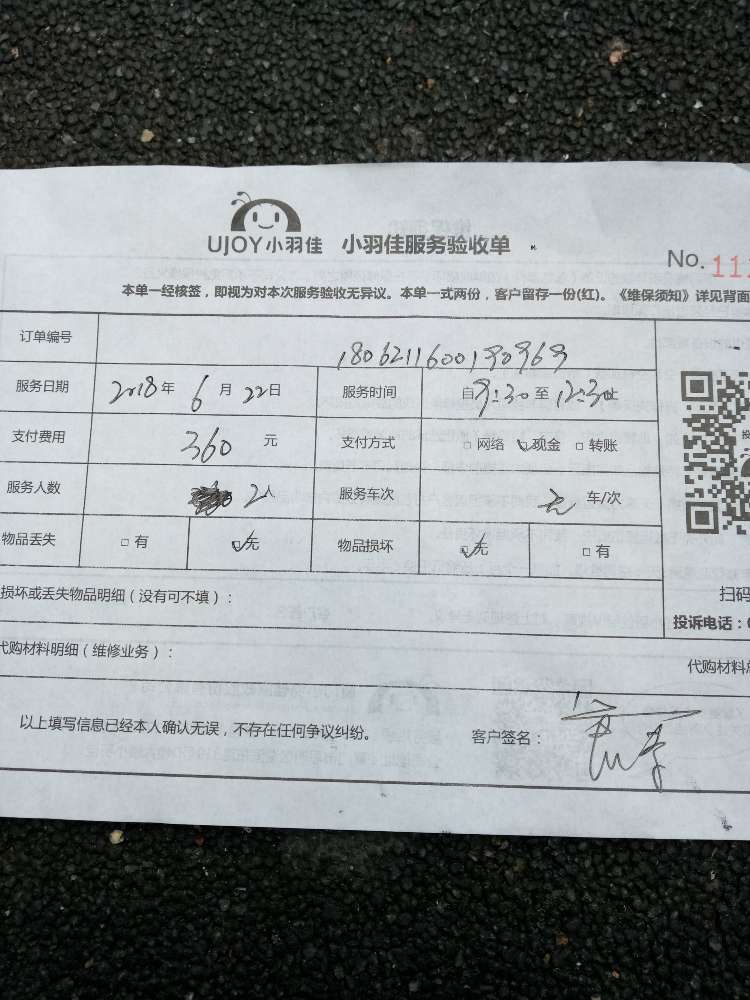 UJOY小羽佳 小羽佳服务验收单
No. 11
本单一经核签，即视为对本次服务验收无异议。本单一式两份，客户留存一份(红)。《维保须知》详见背面
订单编号 1806211600190969
服务日期 2018年 6月 22日 服务时间 自9:30至12:30止
支付费用 360 元 支付方式 □网络 ☑现金 □转账
服务人数 2人 服务车次 无 车/次
物品丢失 □有 ☑无 物品损坏 ☑无 □有
损坏或丢失物品明细（没有可不填）：
扫码
投诉电话：0
代购材料明细（维修业务）：
代购材料总
以上填写信息已经本人确认无误，不存在任何争议纠纷。 客户签名：